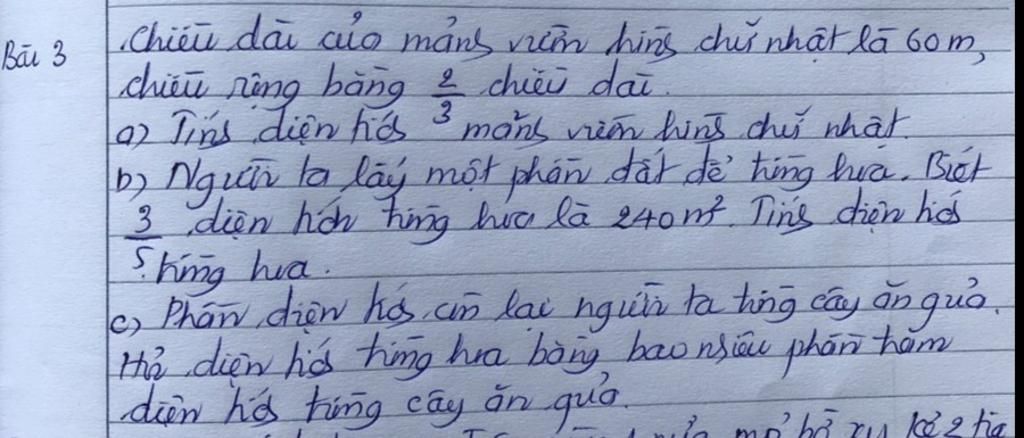 Bài 3
Chiều dài của mảnh vườn hình chữ nhật là 60m,
chiều rộng bằng 2/3 chiều dài.
a) Tính diện tích mảnh vườn hình chữ nhật.
b) Người ta lấy một phần đất để trồng hoa. Biết
3/5 diện tích trồng hoa là 240m². Tính diện tích
trồng hoa.
c) Phần diện tích còn lại người ta trồng cây ăn quả.
Hỏi diện tích trồng hoa bằng bao nhiêu phần trăm
diện tích trồng cây ăn quả.
kẻ 2 tia